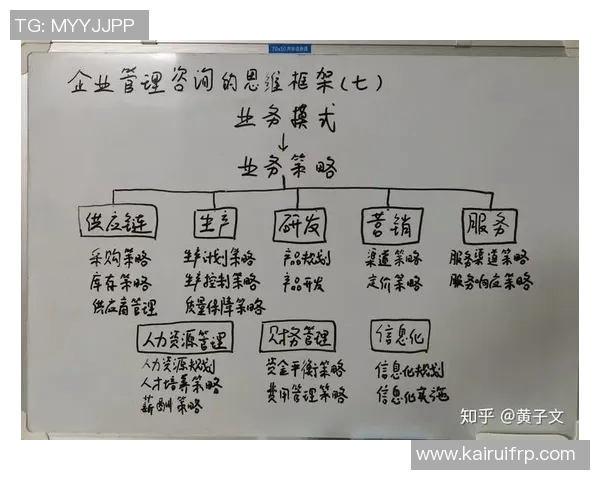 TG: MYYJJPP
企业管理咨询的思维框架(七)
业务模式
↓
业务策略
供应链 生产 研发 营销 服务
采购策略 生产计划策略 产品规划 渠道策略 服务渠道策略
库存策略 生产控制策略 产品开发 定价策略 服务响应策略
供应商管理 质量保障策略
人力资源管理 财务管理 信息化
人力资源规划 资金平衡策略 信息化规划
人才培养策略 费用管理策略 信息化实施
薪酬策略
知乎 @黄子文
www.kairuifrp.com